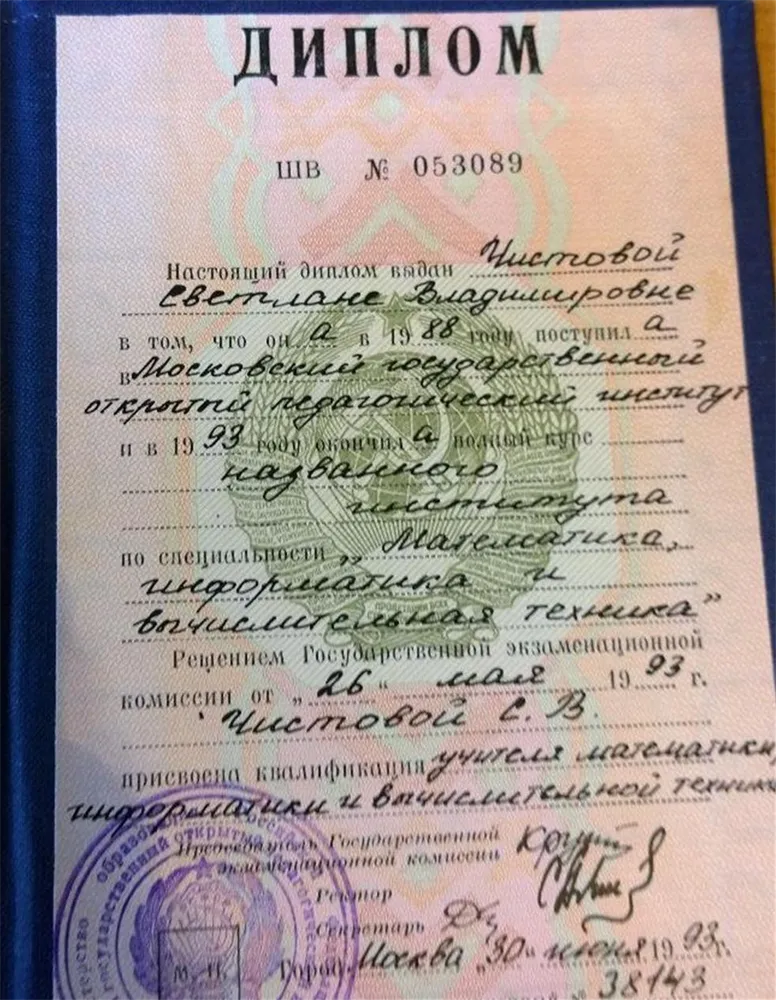 ДИПЛОМ
ШВ № 053089
Настоящий диплом выдан Чистовой
Светлане Владимировне
в том, что он а в 1988 году поступил а
в Московский государственный
открытый педагогический институт
и в 1993 году окончил а полный курс
названного
института
по специальности „Математика,
информатика и
вычислительная техника”
Решением Государственной экзаменационной
комиссии от „26“ мая 1993 г.
Чистовой С. В.
присвоена квалификация учителя математики,
информатики и вычислительной техники
Председатель Государственной
экзаменационной комиссии
Ректор
Секретарь
Город Москва „30“ июня 1993г.
М. П.
№ 38143